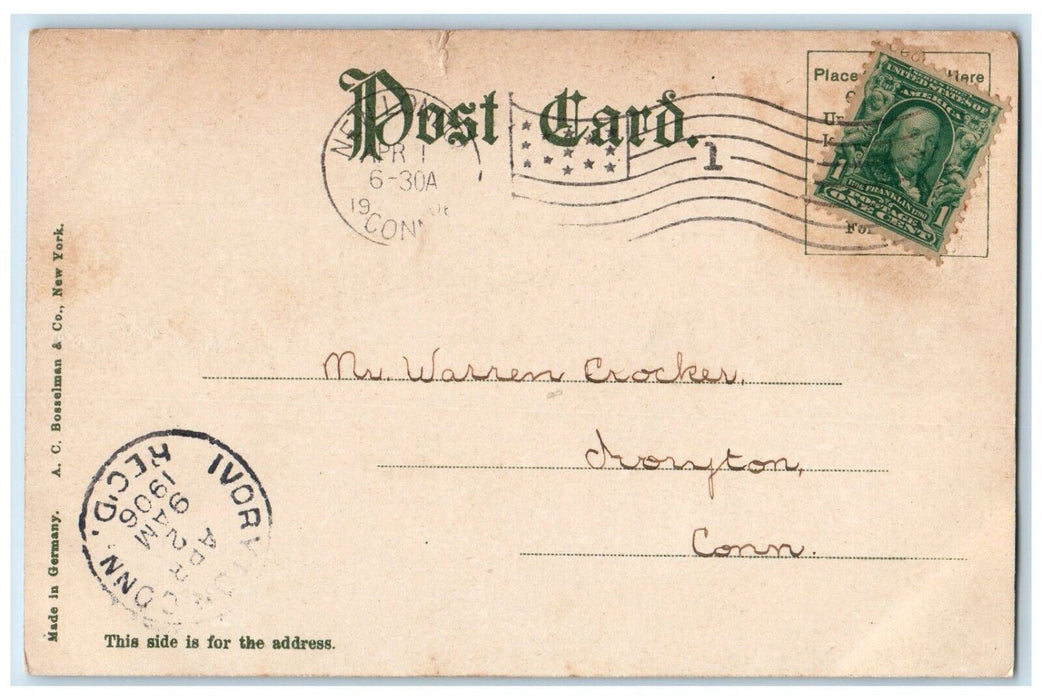 Post Card.
Place Here
APR 1
6-30A
19
CONN
1
UNITED STATES OF
AMERICA
1 1706 FRANKLIN 1790 1
POSTAGE
ONE CENT
Mr. Warren Crocker,
Ivoryton,
Conn.
IVORYTON CONN. REC'D.
APR
2
9 AM
1906
Made in Germany. A. C. Bosselman & Co., New York.
This side is for the address.